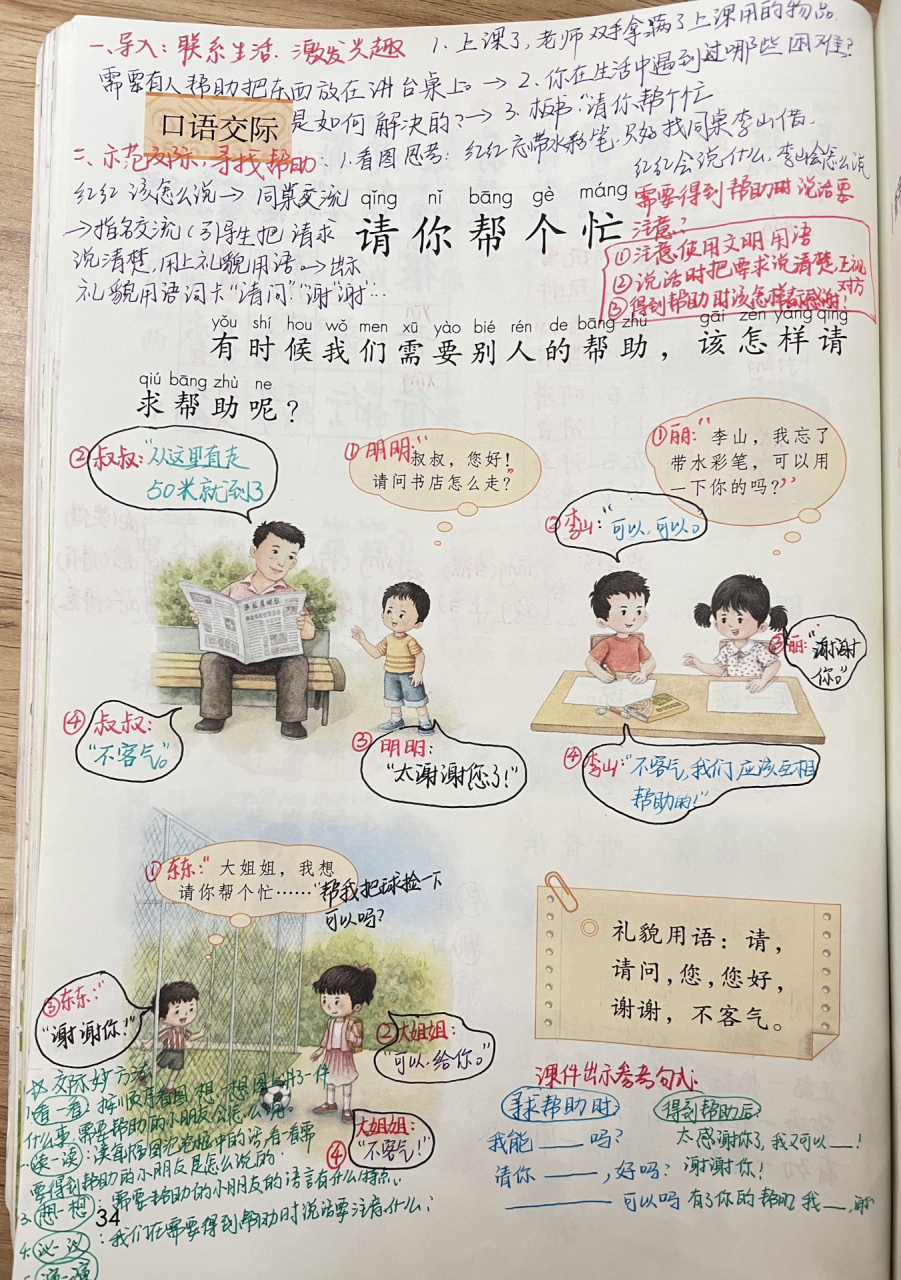 一、导入：联系生活.激发兴趣 1.上课了,老师双手拿满了上课用的物品.
需要有人帮助把东西放在讲台桌上。→2.你在生活中遇到过哪些困难?
口语交际 是如何解决的?→3.板书"请你帮个忙
二、示范交际,寻找帮助：1.看图思考：红红忘带水彩笔,只好找同桌李山借.
红红会说什么,李山会怎么说
红红该怎么说→同桌交流
→指名交流(引导生把请求
说清楚,用上礼貌用语。→出示
礼貌用语词卡"请问""谢谢"…
qǐng nǐ bāng gè máng
请你帮个忙
需要得到帮助时说话要
注意：
①注意使用文明用语
②说话时把要求说清楚,正视对方
③得到帮助时该怎样表示感谢!
yǒu shí hou wǒ men xū yào bié rén de bāng zhù gāi zěn yàng qǐng
有时候我们需要别人的帮助，该怎样请
qiú bāng zhù ne
求帮助呢？
②叔叔："从这里直走
50米就到了
①明明："叔叔，您好！
请问书店怎么走？"
①丽："李山，我忘了
带水彩笔，可以用
一下你的吗？"
②李山："可以,可以。"
③丽："谢谢
你。"
④叔叔：
"不客气"。
③明明：
"太谢谢您了!"
④李山："不客气,我们应该互相
帮助的!"
①东东："大姐姐，我想
请你帮个忙……"帮我把球捡一下
可以吗?
③东东：
"谢谢你!"
②大姐姐：
"可以.给你。"
④大姐姐：
"不客气!"
礼貌用语：请，
请问，您，您好，
谢谢，不客气。
课件出示参考句式：
寻求帮助时 得到帮助后
我能____吗? 太感谢你了,我又可以__!
请你____,好吗? 谢谢你!
____可以吗 有了你的帮助,我__,
交际妙方法
1.看一看：按顺序看图,想一想图上讲了一件
什么事,需要帮助的小朋友会怎么说。
读一读：读每幅图泡泡框中的话,看看需
要得到帮助的小朋友是怎么说的.
3.想一想：需要帮助的小朋友的语言有什么特点
4.议一议：我们在需要得到帮助时说话要注意什么
演一演
34